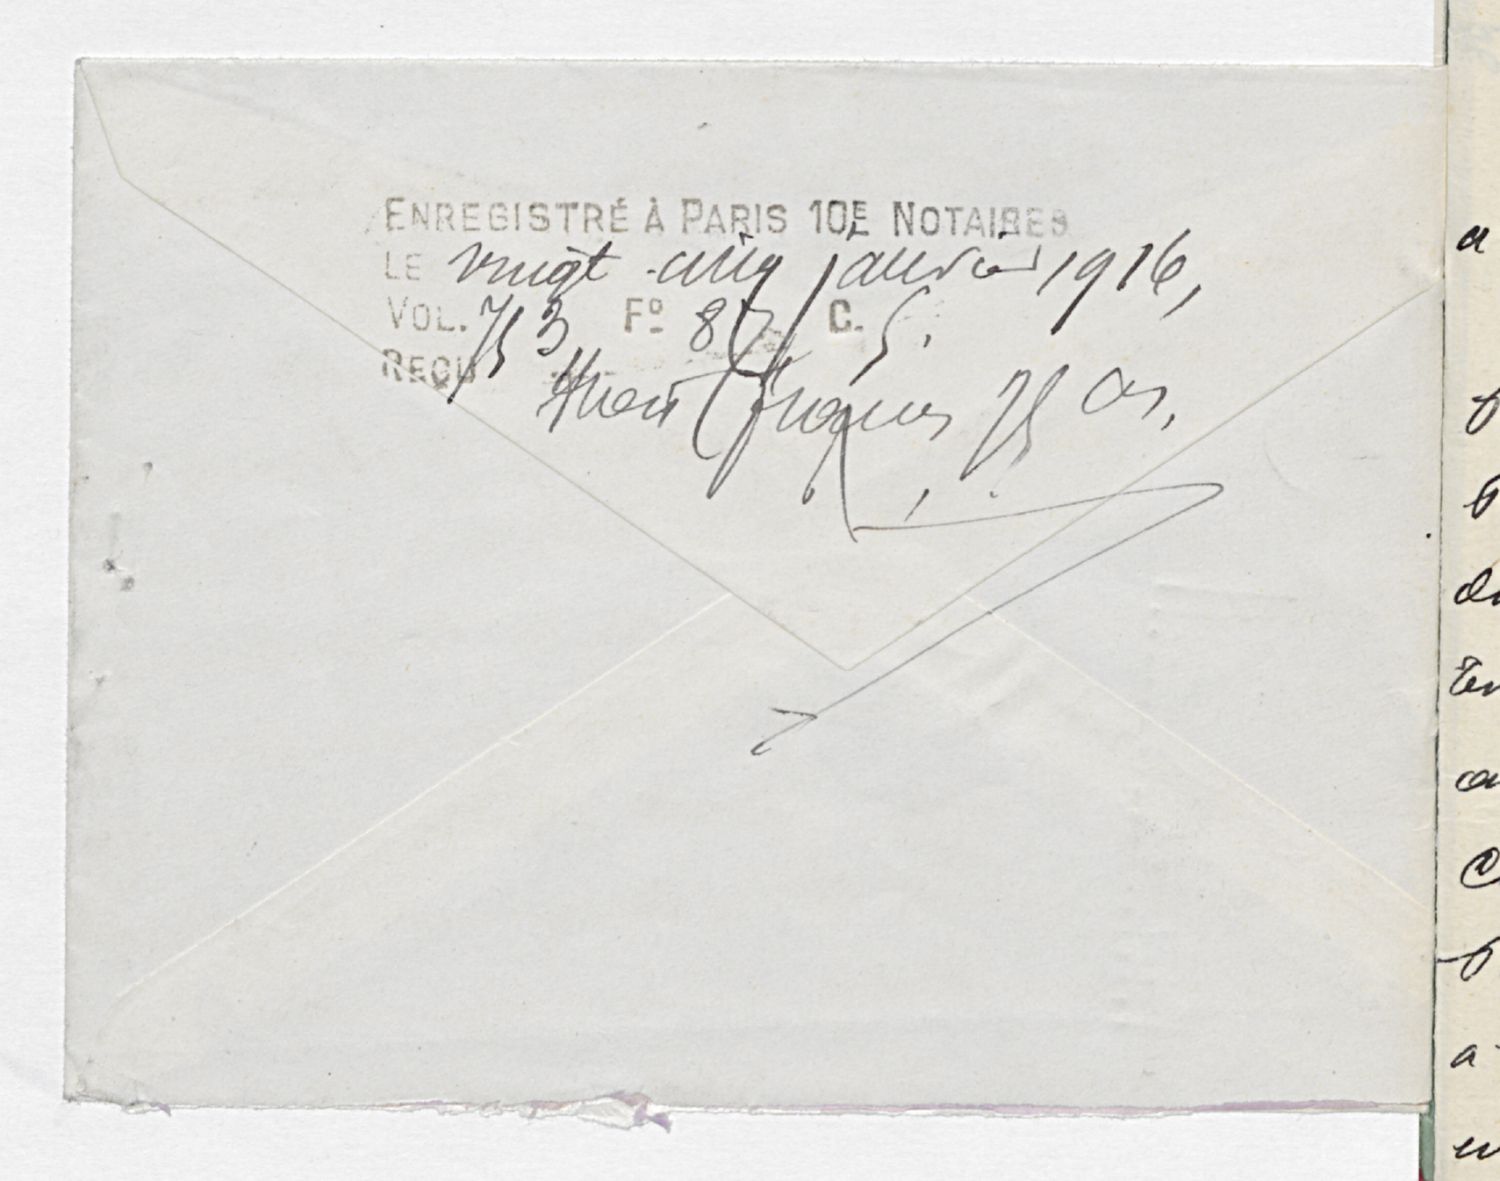 ENREGISTRÉ À PARIS 10E NOTAIRES
LE vingt cinq janvier 1916,
VOL. 753 Fº 87 C. 5.
REÇU francs 75 cs,
a
a